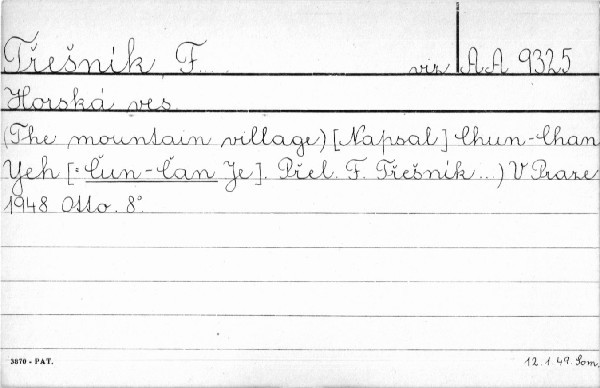 Třešník F. viz AA 9325
Horská ves.
(The mountain village) [Napsal] Chun-Chan
Yeh [= Čun-Čan Je]. Přel. F. Třešník...) V Praze
1948 Otto. 8°.
3870 - PAT. 12.1.49. Som.